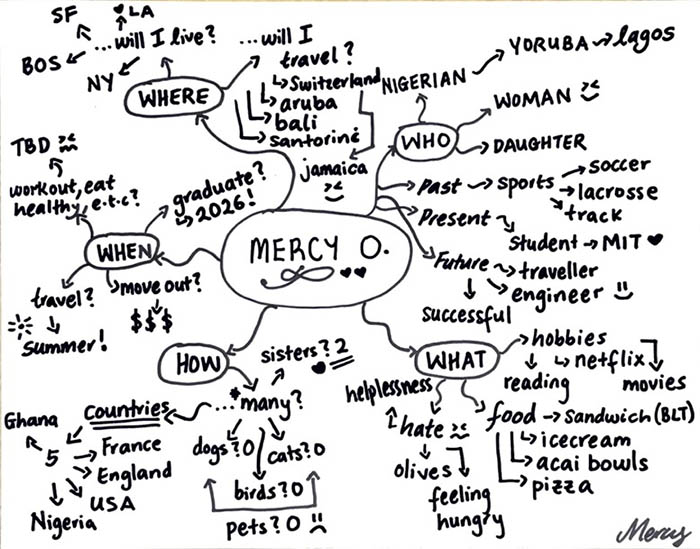 SF
LA
...will I live?
BOS
NY
WHERE
...will I
travel?
Switzerland
aruba
bali
santorini
jamaica
NIGERIAN
YORUBA
lagos
WOMAN
WHO
DAUGHTER
Past
sports
soccer
lacrosse
track
Present
student
MIT
Future
traveller
engineer
successful
TBD
workout, eat
healthy, e.t.c?
graduate?
2026!
WHEN
travel?
summer!
move out?
$$$
MERCY O.
HOW
sisters? 2
...*many?
countries
Ghana
5
France
England
USA
Nigeria
dogs? 0
cats? 0
birds? 0
pets? 0
WHAT
hobbies
netflix
reading
movies
helplessness
hate
olives
feeling
hungry
food
Sandwich (BLT)
icecream
acai bowls
pizza
Mercy